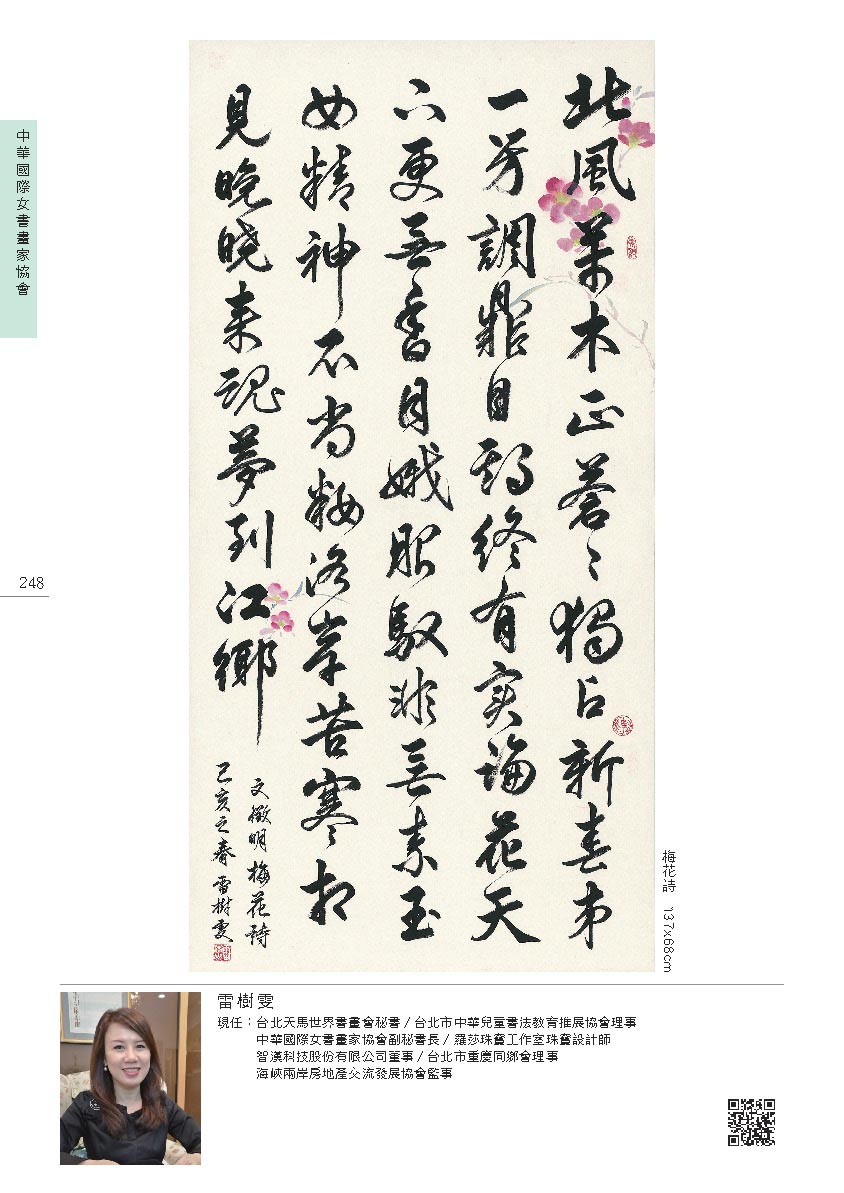 中華國際女書畫家協會
248
北風萬木正蒼〻獨占新春第
一芳調鼎自期終有实論花天
下更無香月娥服馭非無素玉
女精神不尚粧洛岸苦寒相
見晚曉来魂夢到江鄉
文徵明梅花詩
己亥之春雷樹雯
梅花詩 137x68cm
雷樹雯
現任：台北天馬世界書畫會秘書 / 台北市中華兒童書法教育推展協會理事
中華國際女書畫家協會副秘書長 / 羅莎珠寶工作室珠寶設計師
智漢科技股份有限公司董事 / 台北市重慶同鄉會理事
海峽兩岸房地產交流發展協會監事